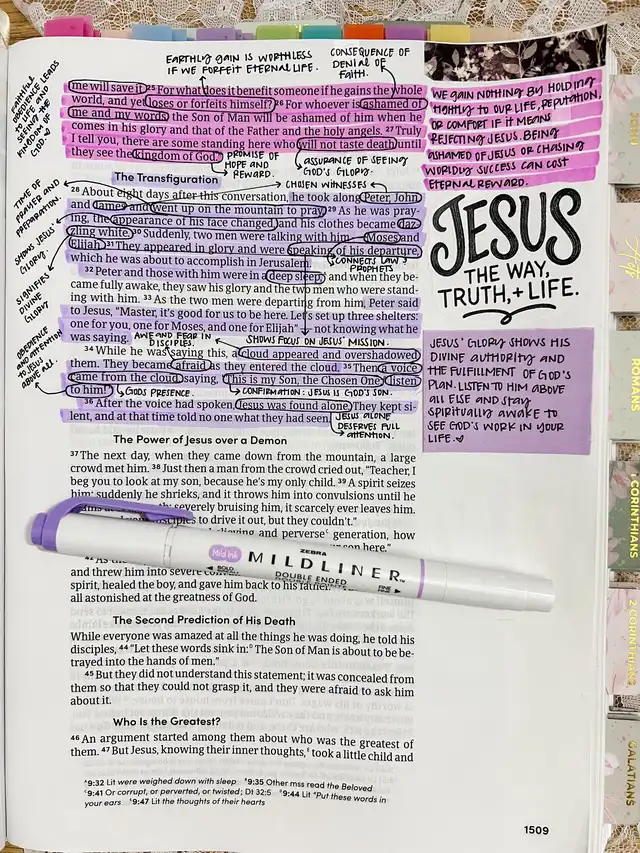 EARTHLY GAIN IS WORTHLESS
IF WE FORFEIT ETERNAL LIFE.
CONSEQUENCE OF
DENIAL OF
FAITH.
FAITHFUL
OBEDIENCE LEADS
TO LIFE AND
SEEING THE
KINGDOM OF
GOD.
me will save it. 25 For what does it benefit someone if he gains the whole
world, and yet loses or forfeits himself? 26 For whoever is ashamed of
me and my words, the Son of Man will be ashamed of him when he
comes in his glory and that of the Father and the holy angels. 27 Truly
I tell you, there are some standing here who will not taste death until
they see the kingdom of God."
PROMISE OF
HOPE AND
REWARD.
ASSURANCE OF SEEING
GOD'S GLORY.
WE GAIN NOTHING BY HOLDING
TIGHTLY TO OUR LIFE, REPUTATION,
OR COMFORT IF IT MEANS
REJECTING JESUS. BEING
ASHAMED OF JESUS OR CHASING
WORLDLY SUCCESS CAN COST
ETERNAL REWARD.
The Transfiguration
CHOSEN WITNESSES
TIME OF
PRAYER AND
PREPARATION.
SHOWS JESUS'
GLORY.
SIGNIFIES
DIVINE
GLORY
28 About eight days after this conversation, he took along Peter, John
and James and went up on the mountain to pray. 29 As he was pray-
ing, the appearance of his face changed, and his clothes became daz-
zling white. 30 Suddenly, two men were talking with him—Moses and
Elijah. 31 They appeared in glory and were speaking of his departure,
which he was about to accomplish in Jerusalem.
CONNECTS LAW &
PROPHETS
32 Peter and those with him were in a deep sleep, and when they be-
came fully awake, they saw his glory and the two men who were stand-
ing with him. 33 As the two men were departing from him, Peter said
to Jesus, "Master, it's good for us to be here. Let's set up three shelters:
one for you, one for Moses, and one for Elijah"—not knowing what he
was saying.
AWE AND FEAR IN
DISCIPLES.
SHOWS FOCUS ON JESUS' MISSION.
OBEDIENCE
AND ATTENTION
TO JESUS
ABOVE ALL.
34 While he was saying this, a cloud appeared and overshadowed
them. They became afraid as they entered the cloud. 35 Then a voice
came from the cloud, saying, "This is my Son, the Chosen One; listen
to him!"
GODS PRESENCE.
CONFIRMATION: JESUS IS GOD'S SON.
36 After the voice had spoken, Jesus was found alone. They kept si-
lent, and at that time told no one what they had seen.
JESUS ALONE
DESERVES FULL
ATTENTION.
JESUS
THE WAY,
TRUTH, + LIFE.
JESUS' GLORY SHOWS HIS
DIVINE AUTHORITY AND
THE FULFILLMENT OF GOD'S
PLAN. LISTEN TO HIM ABOVE
ALL ELSE AND STAY
SPIRITUALLY AWAKE TO
SEE GOD'S WORK IN YOUR
LIFE.
The Power of Jesus over a Demon
37 The next day, when they came down from the mountain, a large
crowd met him. 38 Just then a man from the crowd cried out, "Teacher, I
beg you to look at my son, because he's my only child. 39 A spirit seizes
him; suddenly he shrieks, and it throws him into convulsions until he
severely bruising him, it scarcely ever leaves him.
to drive it out, but they couldn't."
and perverse generation, how
son here."
Mild Ink
ZEBRA
MILDLINER
DOUBLE ENDED
BOLD
FINE
and threw him into severe
spirit, healed the boy, and gave him back to his father.
all astonished at the greatness of God.
The Second Prediction of His Death
While everyone was amazed at all the things he was doing, he told his
disciples, 44 "Let these words sink in: The Son of Man is about to be be-
trayed into the hands of men."
45 But they did not understand this statement; it was concealed from
them so that they could not grasp it, and they were afraid to ask him
about it.
Who Is the Greatest?
46 An argument started among them about who was the greatest of
them. 47 But Jesus, knowing their inner thoughts, took a little child and
9:32 Lit were weighed down with sleep 9:35 Other mss read the Beloved
9:41 Or corrupt, or perverted, or twisted; Dt 32:5 9:44 Lit "Put these words in
your ears 9:47 Lit the thoughts of their hearts
1509
JOHN
Acts
ROMANS
1 CORINTHIANS
2 CORINTHIANS
GALATIANS